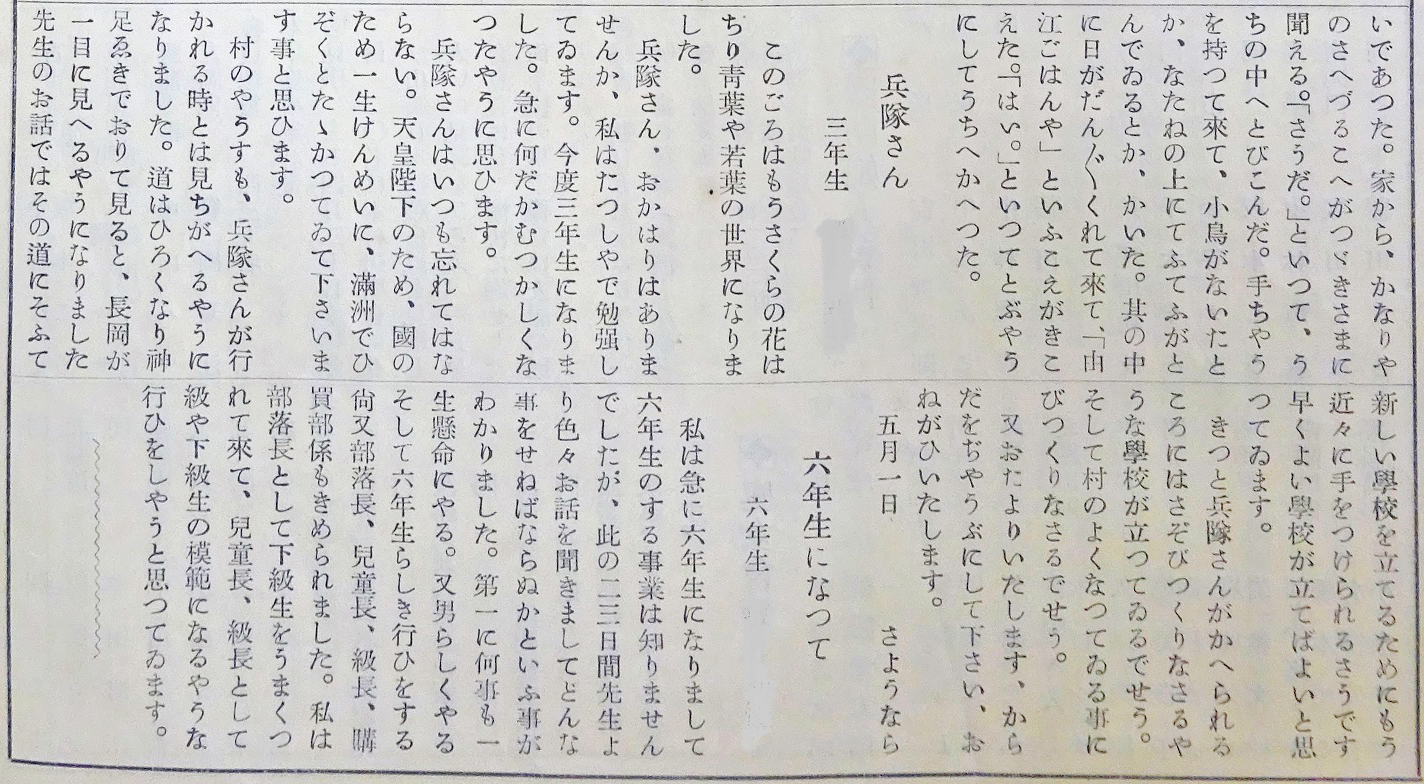 いであつた。家から、かなりや
のさへづるこへがつゞきさまに
聞える。「さうだ。」といつて、う
ちの中へとびこんだ。手ちやう
を持つて來て、小鳥がないたと
か、なたねの上にてふてふがと
んでゐるとか、かいた。其の中
に日がだん〲くれて來て、「由
江ごはんや」といふこえがきこ
えた。「はい。」といつてとぶやう
にしてうちへかへつた。
兵隊さん
三年生
このごろはもうさくらの花は
ちり青葉や若葉の世界になりま
した。
兵隊さん、おかはりはありま
せんか、私はたつしやで勉强し
てゐます。今度三年生になりま
した。急に何だかむつかしくな
つたやうに思ひます。
兵隊さんはいつも忘れてはな
らない。天皇陛下のため、國の
ため一生けんめいに、滿洲でひ
ぞくとたゝかつてゐて下さいま
す事と思ひます。
村のやうすも、兵隊さんが行
かれる時とは見ちがへるやうに
なりました。道はひろくなり神
足ゑきでおりて見ると、長岡が
一目に見へるやうになりました
先生のお話ではその道にそふて
新しい學校を立てるためにもう
近々に手をつけられるさうです
早くよい學校が立てばよいと思
つてゐます。
きつと兵隊さんがかへられる
ころにはさぞびつくりなさるや
うな學校が立つてゐるでせう。
そして村のよくなつてゐる事に
びつくりなさるでせう。
又おたよりいたします、から
だをぢやうぶにして下さい、お
ねがひいたします。
五月一日　さようなら
六年生になつて
六年生
私は急に六年生になりまして
六年生のする事業は知りません
でしたが、此の二三日間先生よ
り色々お話を聞きましてどんな
事をせねばならぬかといふ事が
わかりました。第一に何事も一
生懸命にやる。又男らしくやる
そして六年生らしき行ひをする
尙又部落長、兒童長、級長、購
買部係もきめられました。私は
部落長として下級生をうまくつ
れて來て、兒童長、級長として
級や下級生の模範になるやうな
行ひをしやうと思つてゐます。